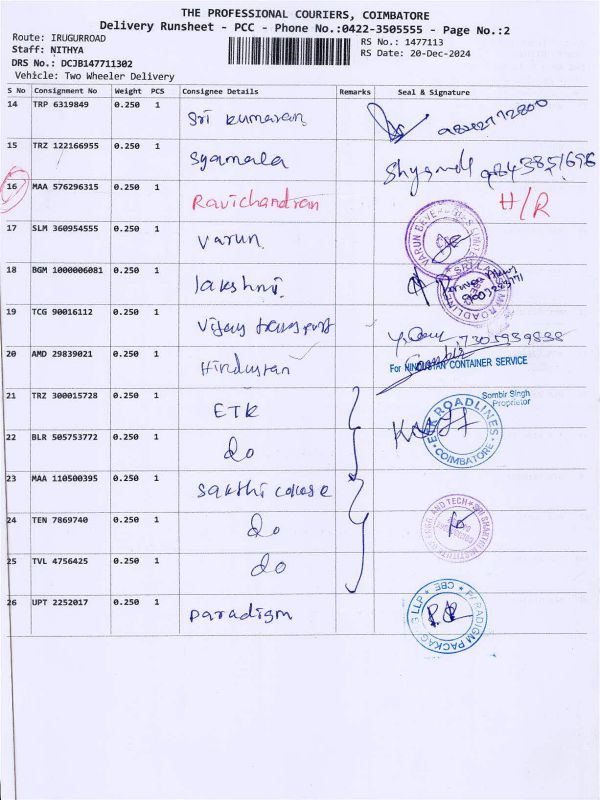 THE PROFESSIONAL COURIERS, COIMBATORE
Delivery Runsheet - PCC - Phone No.:0422-3505555 - Page No.:2
Route: IRUGURROAD
Staff: NITHYA
DRS No.: DCJB147711302
Vehicle: Two Wheeler Delivery
RS No.: 1477113
RS Date: 20-Dec-2024
S No Consignment No Weight PCS Consignee Details Remarks Seal & Signature
14 TRP 6319849 0.250 1 Sri Kumaran
15 TRZ 122166955 0.250 1 Syamala
16 MAA 576296315 0.250 1 Ravichandran H/R
17 SLM 360954555 0.250 1 Varun
18 BGM 1000006081 0.250 1 lakshmi
19 TCG 90016112 0.250 1 Vijay transport 7305939838
20 AMD 29839021 0.250 1 Hindustan
For HINDUSTAN CONTAINER SERVICE
Sombir Singh
Proprietor
21 TRZ 300015728 0.250 1 ETR
ROADLINES
COIMBATORE
22 BLR 505753772 0.250 1 do
23 MAA 110500395 0.250 1 Sakthi
24 TEN 7869740 0.250 1 do
25 TVL 4756425 0.250 1 do
26 UPT 2252017 0.250 1 Paradigm
PARADIGM PACKAGING LLP * CBE *